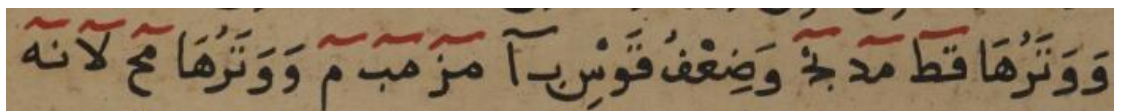 وَوَتَرُهَا قط مد لح وَضِعْفُ قَوْسِ ب آ مز مب م وَوَتَرُهَا مح لا نه